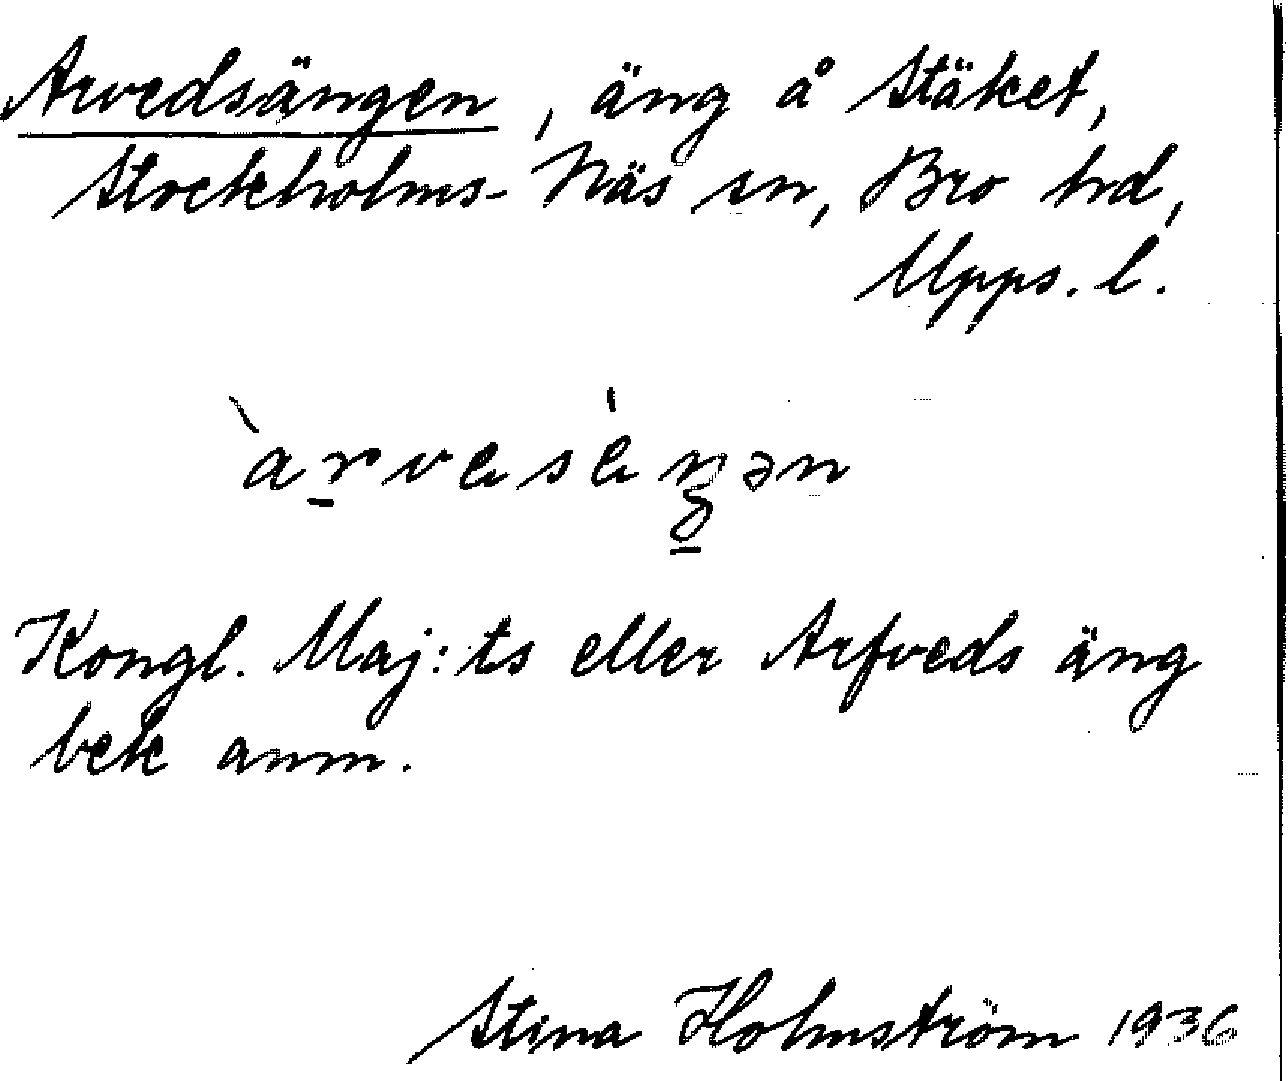 Arvedsängen, äng å Stäket,
Stockholms-Näs sn, Bro hd,
Upps. l.
Kongl. Maj:ts eller Arfveds äng
bek anm.
Stina Holmström 1936